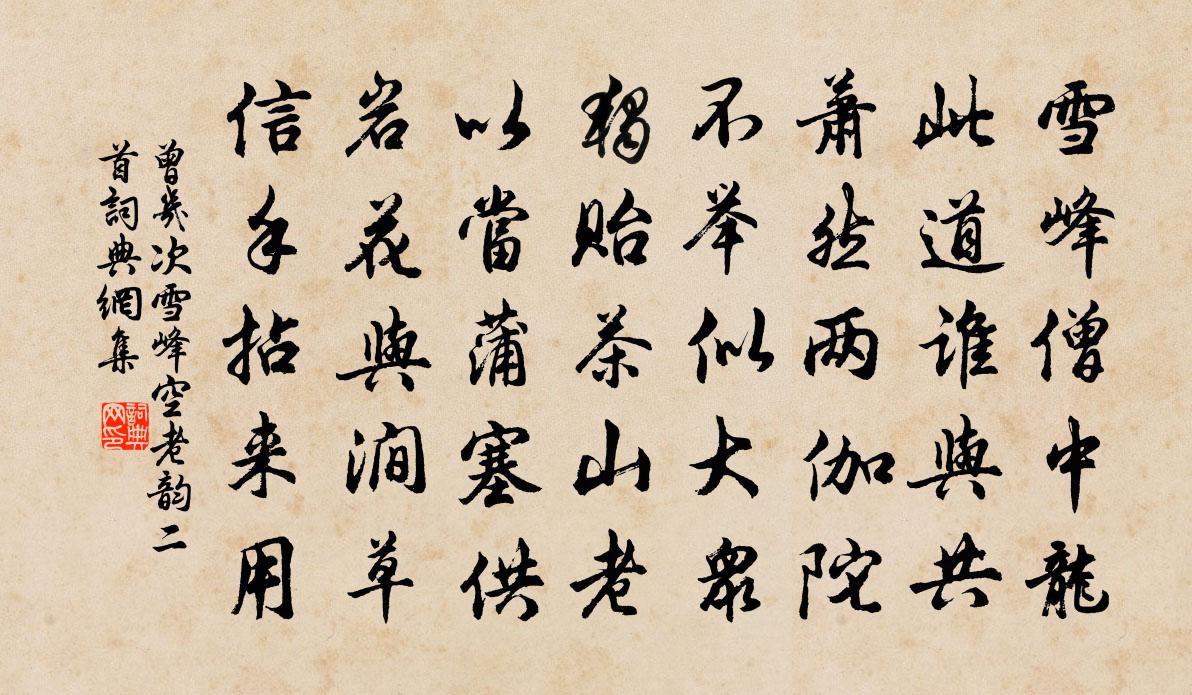 雪峰僧中龍
此道誰與共
蕭然两伽陀
不举似大衆
獨貽茶山老
以當蒲塞供
岩花與澗草
信手拈来用
曾幾次雪峰空老韵二
首詞典網集
詞典
网印